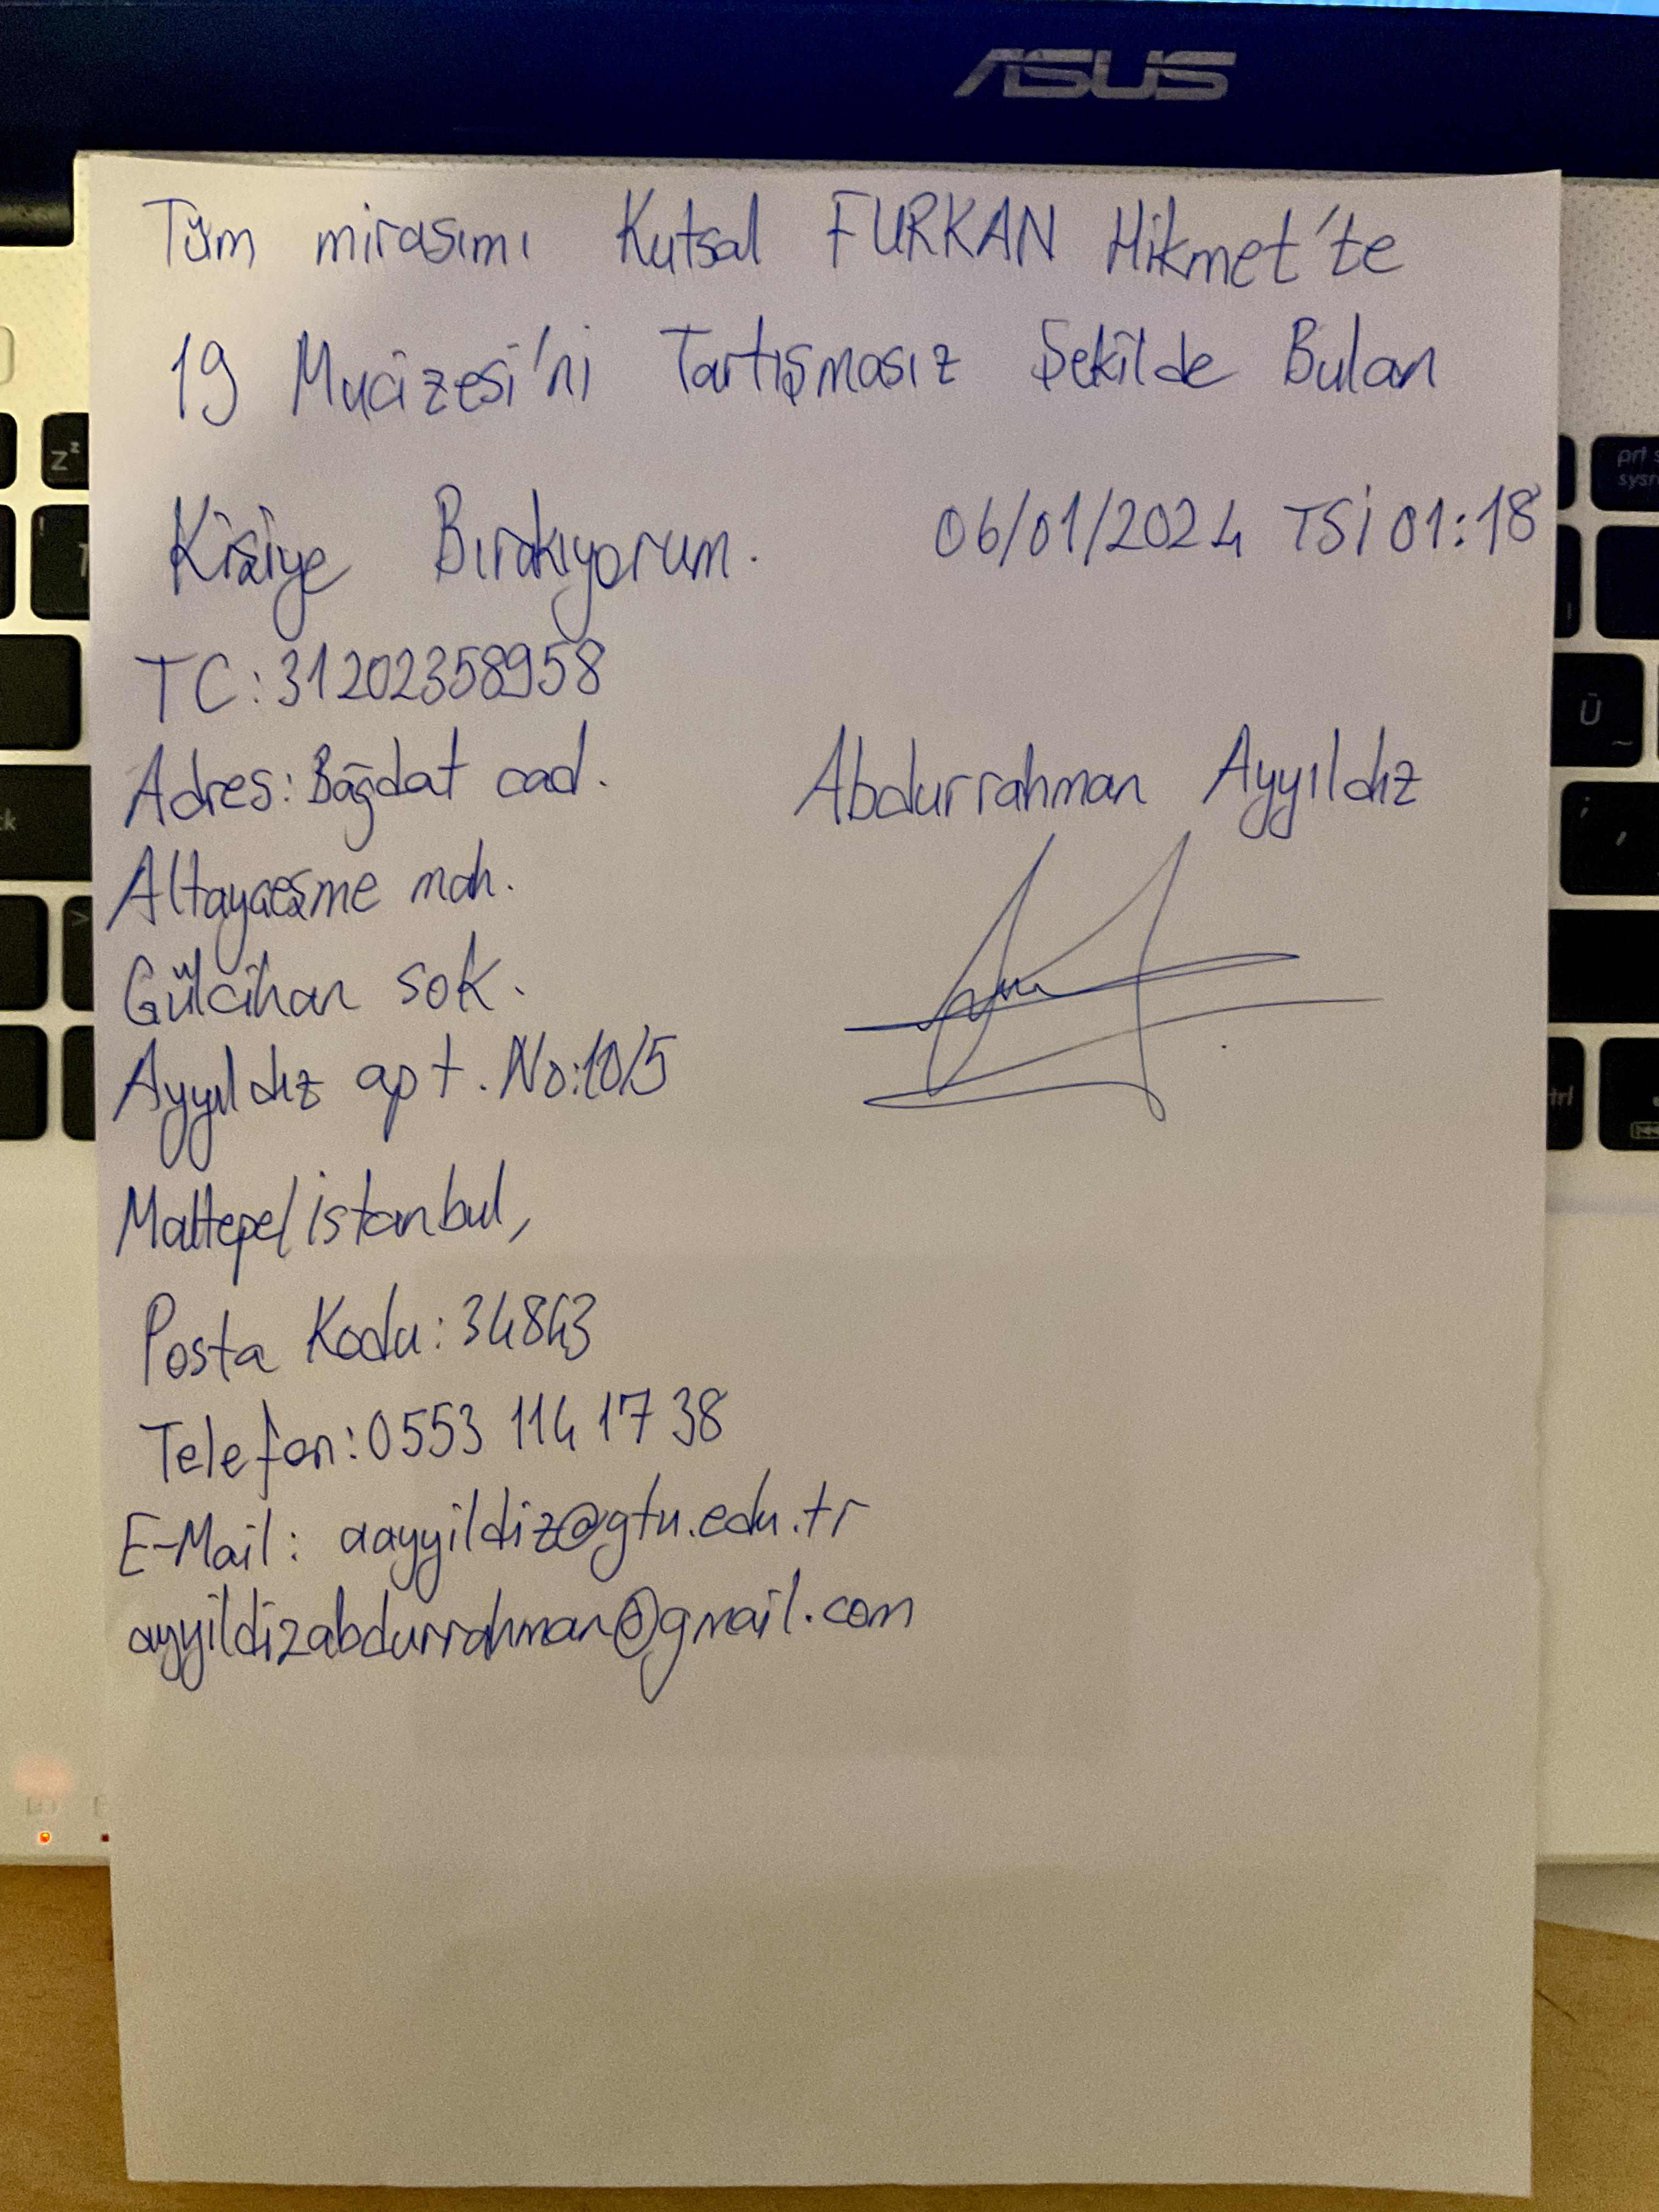 ASUS
Tüm mirasımı Kutsal FURKAN Hikmet'te
19 Mucizesi'ni Tartışmasız Şekilde Bulan
Kişiye Bırakıyorum. 06/01/2024 TSİ 01:18
TC: 31202358958
Adres: Bağdat cad.
Abdurrahman Ayyıldız
Altayçeşme mah.
Gülcihan sok.
Ayyıldız apt. No:10/5
Maltepe/istanbul,
Posta Kodu: 34843
Telefon: 0553 114 17 38
E-Mail: aayyildiz@gtu.edu.tr
ayyildizabdurrahman@gmail.com
prt s
sysr
Ü